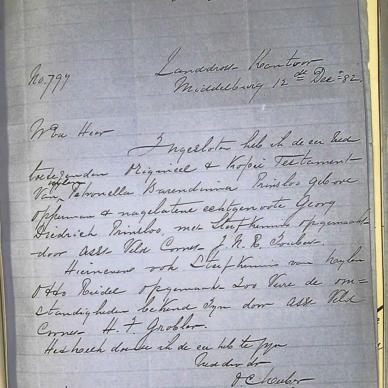 No. 797
Landdrost Kantoor
Middelburg 12de Dec. 82.
WEd Heer
Ingesloten heb ik de eer Ued
toetezenden Origineel & Kopie Testament
Van wylen Petronella Barendina Prinsloo geboren
Opperman & nagelatene echtgenoote Georg
Diedrich Prinsloo, met Sterfkennis opgemaakt
door asst Veld Cornet J. N. R. Joubert.
Hiernevens ook Sterfkennis van wylen
Otto Riedel opgemaakt zoo verre de om-
standigheden bekend zyn door asst Veld
Cornet H. F. Grobler.
de eer heb te zyn
Ued dw dr